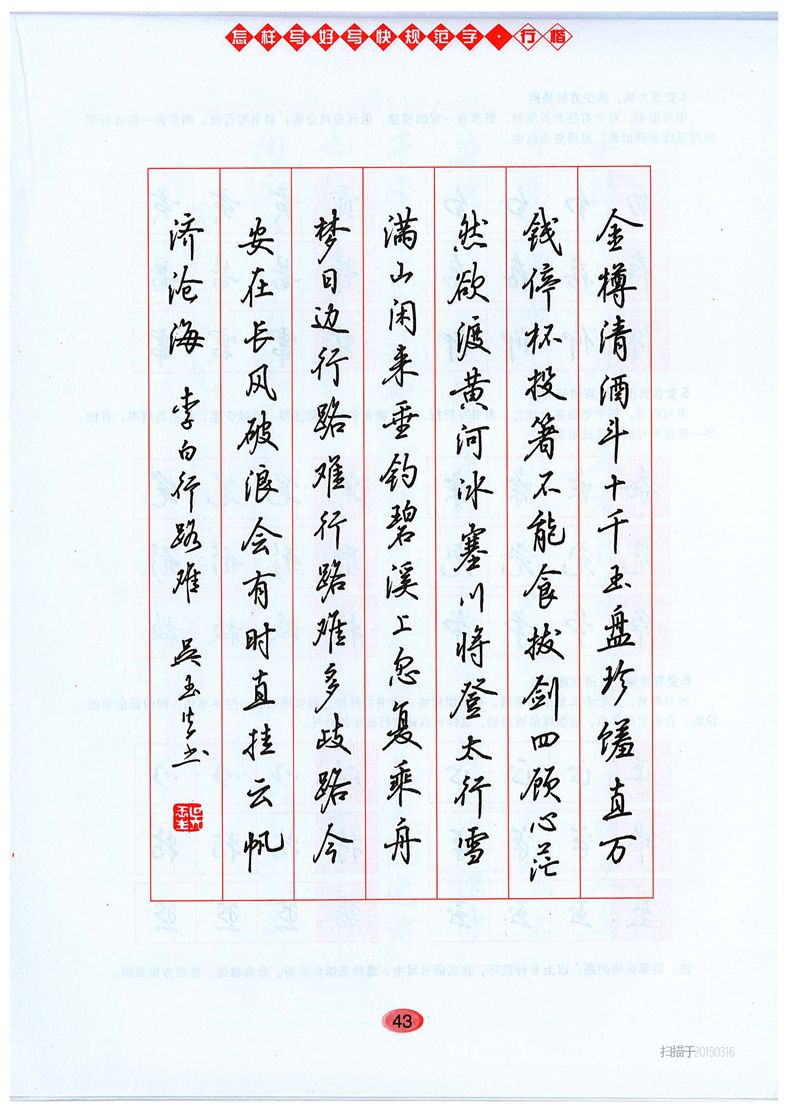 怎样写好写快规范字·行楷
金樽清酒斗十千玉盘珍馐直万
钱停杯投箸不能食拔剑四顾心茫
然欲渡黄河冰塞川将登太行雪
满山闲来垂钓碧溪上忽复乘舟
梦日边行路难行路难多歧路今
安在长风破浪会有时直挂云帆
济沧海 李白行路难 吴玉生书
43
扫描于20150316